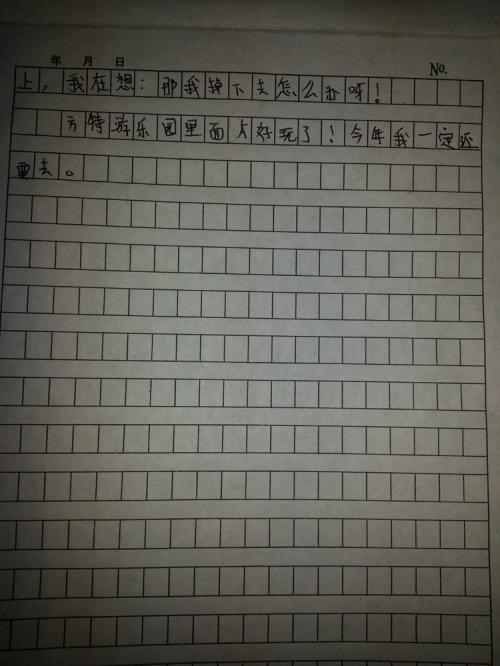 年 月 日
No.
上，我在想：那我掉下去怎么办呀！
方特游乐园里面太好玩了！今年我一定还
要去。